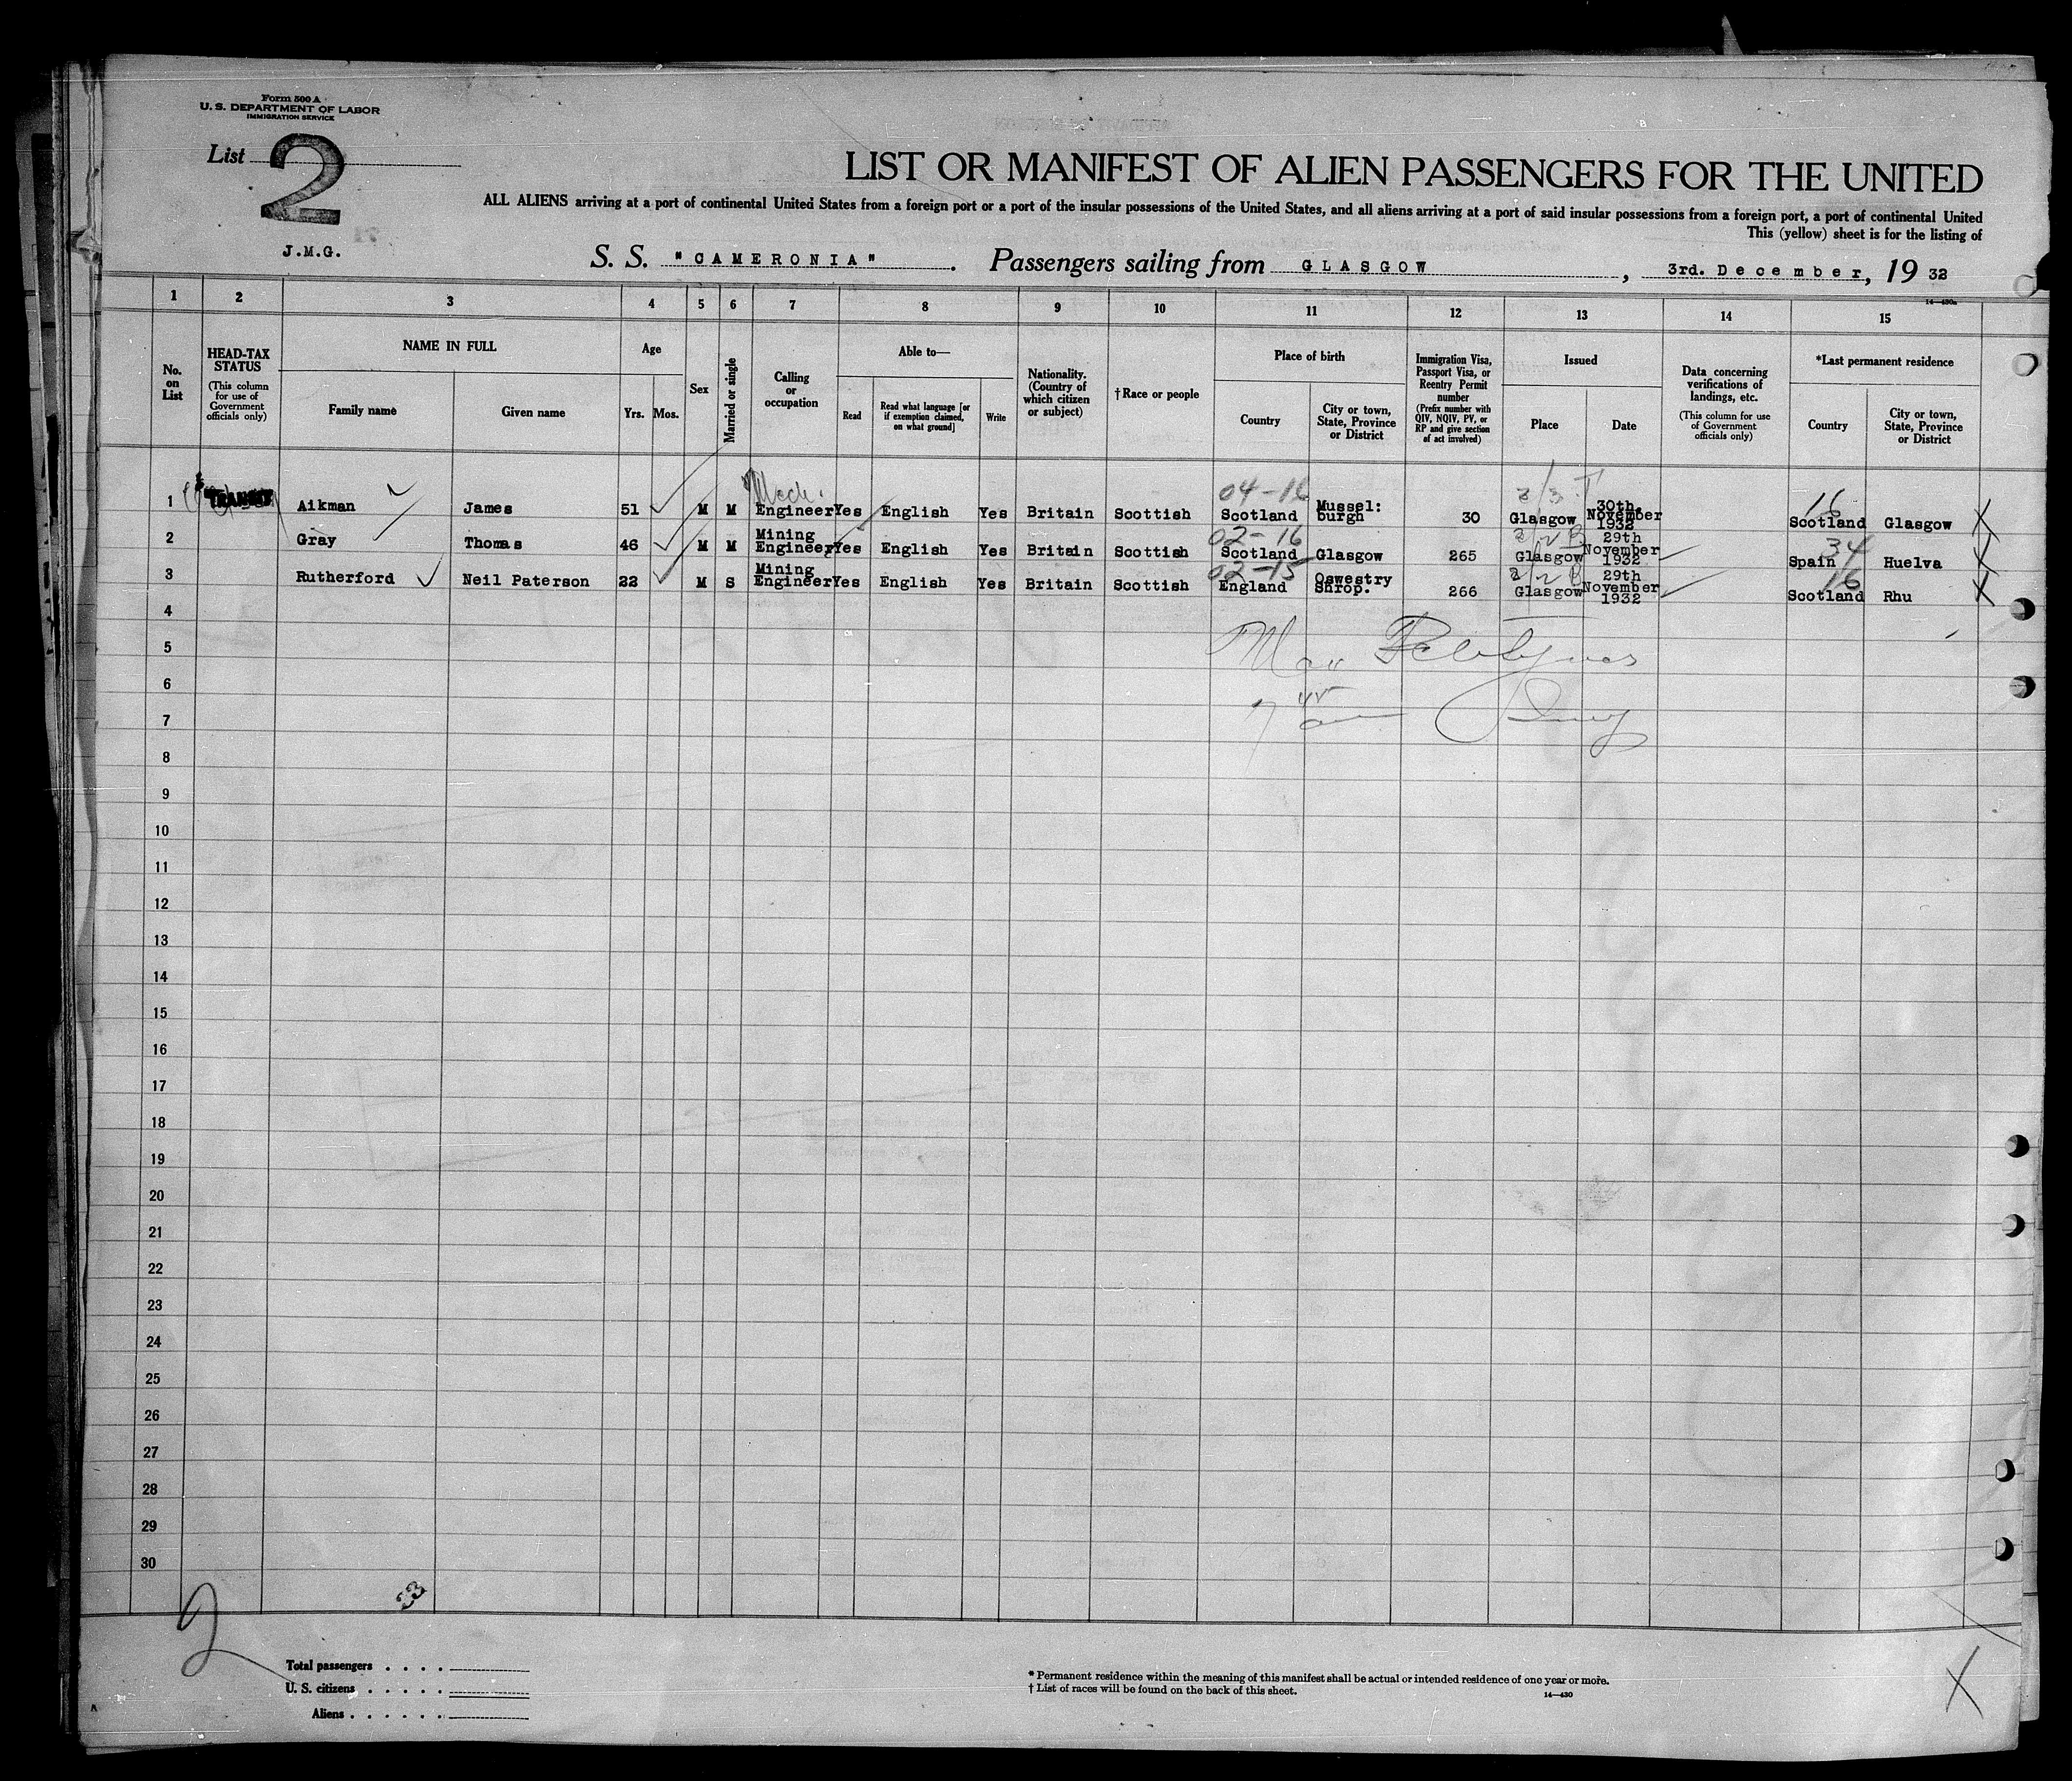 Form 500 A
U. S. DEPARTMENT OF LABOR
IMMIGRATION SERVICE
List 2
J.M.G.
LIST OR MANIFEST OF ALIEN PASSENGERS FOR THE UNITED
ALL ALIENS arriving at a port of continental United States from a foreign port or a port of the insular possessions of the United States, and all aliens arriving at a port of said insular possessions from a foreign port, a port of continental United
This (yellow) sheet is for the listing of
S. S. "CAMERONIA". Passengers sailing from GLASGOW, 3rd. December, 19 32
14—430a
1 2 3 4 5 6 7 8 9 10 11 12 13 14 15
No. on List
HEAD-TAX STATUS (This column for use of Government officials only)
NAME IN FULL
Family name Given name
Age
Yrs. Mos.
Sex
Married or single
Calling or occupation
Able to—
Read
Read what language [or if exemption claimed, on what ground]
Write
Nationality. (Country of which citizen or subject)
† Race or people
Place of birth
Country
City or town, State, Province or District
Immigration Visa, Passport Visa, or Reentry Permit number (Prefix number with QIV, NQIV, PV, or RP and give section of act involved)
Issued
Place Date
Data concerning verifications of landings, etc. (This column for use of Government officials only)
*Last permanent residence
Country
City or town, State, Province or District
Mech. 04-16 16
1 TRANSIT Aikman James 51 M M Engineer Yes English Yes Britain Scottish Scotland Mussel: burgh 30 Glasgow 30th, November 1932 Scotland Glasgow X
02-16 34
2 Gray Thomas 46 M M Mining Engineer Yes English Yes Britain Scottish Scotland Glasgow 265 Glasgow 29th November 1932 Spain Huelva X
02-15 16
3 Rutherford Neil Paterson 22 M S Mining Engineer Yes English Yes Britain Scottish England Oswestry Shrop. 266 Glasgow 29th November 1932 Scotland Rhu X
4
5
6
7
8
9
10
11
12
13
14
15
16
17
18
19
20
21
22
23
24
25
26
27
28
29
30
2
33
Total passengers
U. S. citizens
Aliens
* Permanent residence within the meaning of this manifest shall be actual or intended residence of one year or more.
† List of races will be found on the back of this sheet.
14—430
X